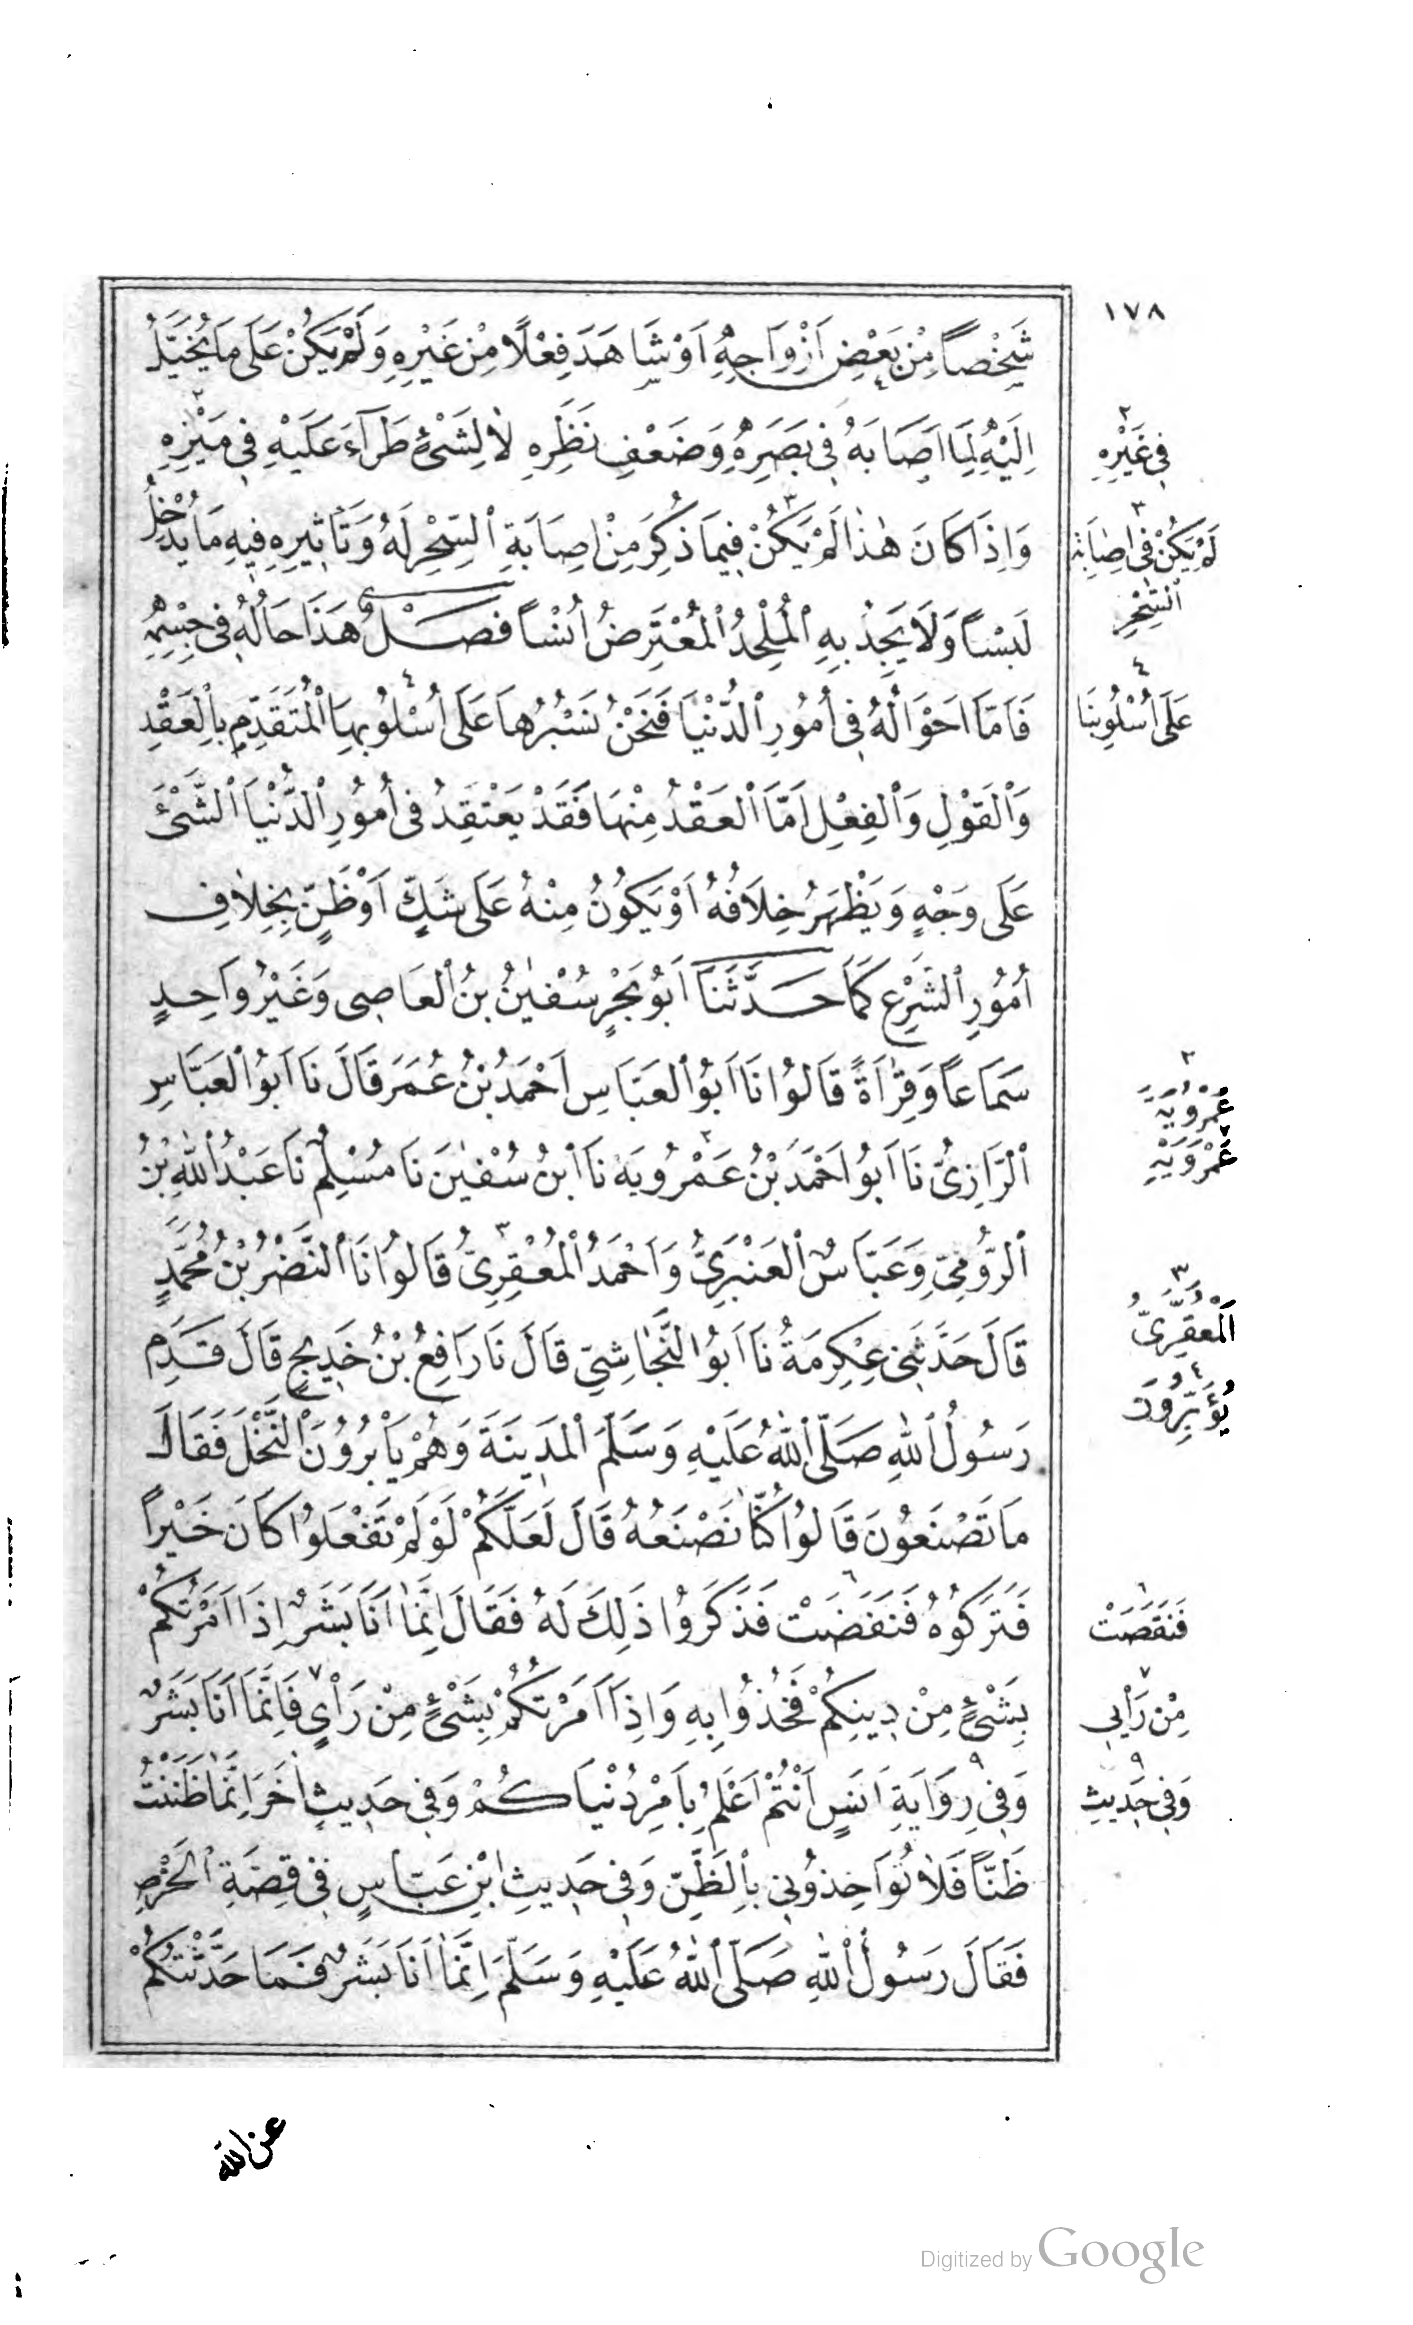 ١٧٨
شَخْصاً مِنْ بَعْضِ اَزْوَاجِهِ اَوْ شَاهَدَ فِعْلًا مِنْ غَيْرِهِ وَلَمْ يَكُنْ عَلَى مَا يُخَيَّلُ
اِلَيْهِ لِمَا اَصَابَهُ فِى بَصَرِهِ وَضَعْفِ نَظَرِهِ لَا لِشَىْءٍ طَرَاَءَ عَلَيْهِ فِى مَيْزِهِ ٢
وَاِذَا كَانَ هٰذَا لَمْ يَكُنْ ٣ فِيمَا ذُكِرَ مِنْ اِصَابَةِ السِّحْرِ لَهُ وَتَاْثِيرِهِ فِيهِ مَا يُدْخِلُ
لَبْساً وَلَا يَجِدُ بِهِ الْمُلْحِدُ الْمُعْتَرِضُ اُنْساً فَصْلٌ هَذَا حَالُهُ فِى جِسْمِهِ
فَاَمَّا اَحْوَالُهُ فِى اُمُورِ الدُّنْيَا فَنَحْنُ نَسْبُرُهَا عَلَى اُسْلُوبِهَا ٤ الْمُتَقَدِّمِ بِالْعَقْدِ
وَالْقَوْلِ وَالْفِعْلِ اَمَّا الْعَقْدُ مِنْهَا فَقَدْ يَعْتَقِدُ فِى اُمُورِ الدُّنْيَا الشَّىْءَ
عَلَى وَجْهٍ وَيَظْهَرُ خِلَافُهُ اَوْ يَكُونُ مِنْهُ عَلَى شَكٍّ اَوْ ظَنٍّ بِخِلَافِ
اُمُورِ الشَّرْعِ كَمَا حَدَّثَنَا اَبُو بَحْرٍ سُفْيٰنُ بْنُ الْعَاصِى وَغَيْرُ وَاحِدٍ
سَمَاعاً وَقِرَاَةً قَالُوا نَا اَبُو الْعَبَّاسِ اَحْمَدُ بْنُ عُمَرَ قَالَ نَا اَبُو الْعَبَّاسِ
الرَّازِىُّ نَا اَبُو اَحْمَدَ بْنُ عَمْرُويَهْ ٢ نَا ابْنُ سُفْيٰنَ نَا مُسْلِمٌ نَا عَبْدُ اللهِ بْنُ
الرُّومِىِّ وَعَبَّاسٌ الْعَنْبَرِىُّ وَاَحْمَدُ الْمُعْقِرِىُّ ٣ قَالُوا نَا النَّضْرُ بْنُ مُحَمَّدٍ
قَالَ حَدَّثَنِى عِكْرِمَةُ نَا اَبُو النَّجَاشِىِّ قَالَ نَا رَافِعُ بْنُ خَدِيجٍ قَالَ قَدِمَ
رَسُولُ اللهِ صَلَّى اللهُ عَلَيْهِ وَسَلَّمَ الْمَدِينَةَ وَهُمْ يَاْبُرُونَ النَّخْلَ فَقَالَ
مَا تَصْنَعُونَ قَالُوا كُنَّا نَصْنَعُهُ قَالَ لَعَلَّكُمْ لَوْ لَمْ تَفْعَلُوا كَانَ خَيْراً
فَتَرَكُوهُ فَنَفَضَتْ ٦ فَذَكَرُوا ذَلِكَ لَهُ فَقَالَ اِنَّمَا اَنَا بَشَرٌ اِذَا اَمَرْتُكُمْ
بِشَىْءٍ مِنْ دِينِكُمْ فَخُذُوا بِهِ وَاِذَا اَمَرْتُكُمْ بِشَىْءٍ مِنْ رَاْىٍ ٧ فَاِنَّمَا اَنَا بَشَرٌ
وَفِى ٩ رِوَايَةِ اَنَسٍ اَنْتُمْ اَعْلَمُ بِاَمْرِ دُنْيَاكُمْ وَفِى حَدِيثٍ اٰخَرَ اِنَّمَا ظَنَنْتُ
ظَنّاً فَلَا تُوَاخِذُونِى بِالظَّنِّ وَفِى حَدِيثِ ابْنِ عَبَّاسٍ فِى قِصَّةِ الْخَرْصِ
فَقَالَ رَسُولُ اللهِ صَلَّى اللهُ عَلَيْهِ وَسَلَّمَ اِنَّمَا اَنَا بَشَرٌ فَمَا حَدَّثْتُكُمْ
٢
فِى غَيْرِهِ
٣
لَمْ يَكُنْ فِى اِصَابَةِ
السِّحْرِ
٤
عَلَى اُسْلُوبِنَا
٢
عَمْرُوْيَهْ
عَمْرَوَيْهِ
٣
الْمَعْقِرِىُّ
٤
يُؤَبِّرُونَ
٦
فَنَقَصَتْ
٧
مِنْ رَاْيِى
٩
وَفِى حَدِيثِ
عن الله
Digitized by Google